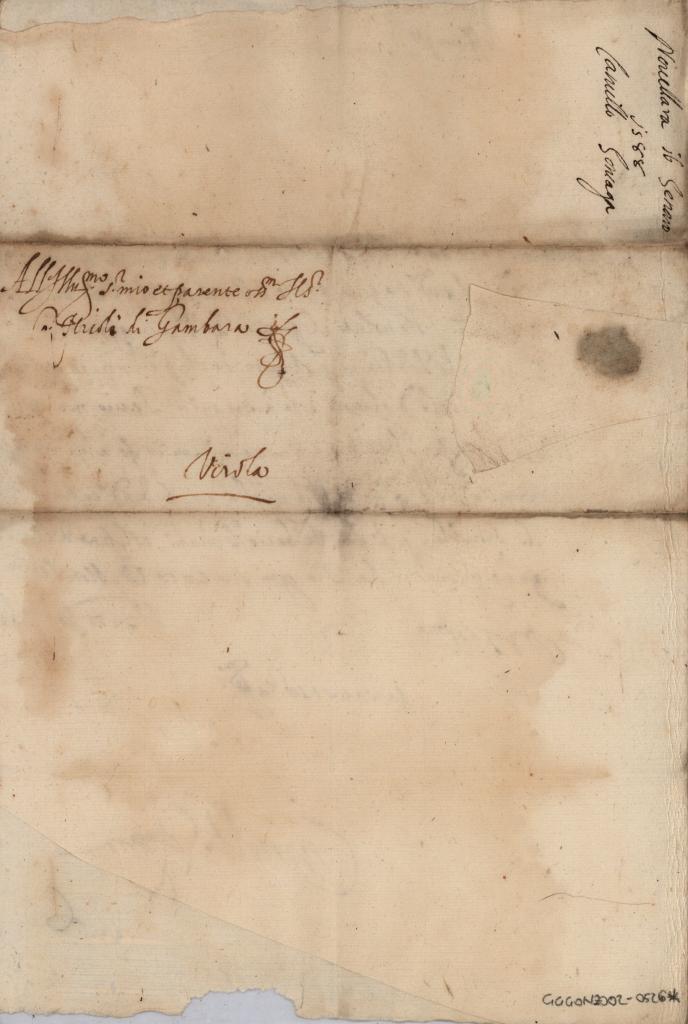 Novellara 16 Genaro
1588
Camillo Gonzaga
All Ill.mo S.r mio et parente oss.mo Il S.r
di Gambara
Virola
GGGONZ002-0526*